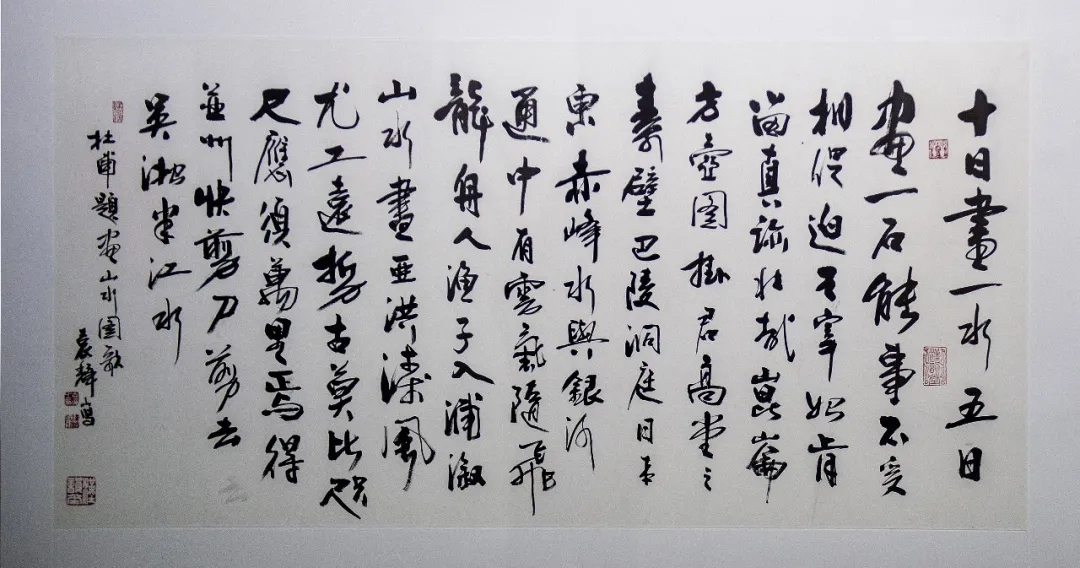 十日畫一水五日
畫一石能事不受
相促迫王宰始肯
留真跡壯哉崑崙
方壺圖掛君高堂之
素壁巴陵洞庭日本
東赤峰水與銀河
通中有雲氣隨飛
龍舟人漁子入浦漵
山水盡亞洪濤風
尤工遠勢古莫比咫
尺應須萬里焉得
並州快剪刀剪去
吳淞半江水
杜甫題畫山水圖歌
袁輝寫